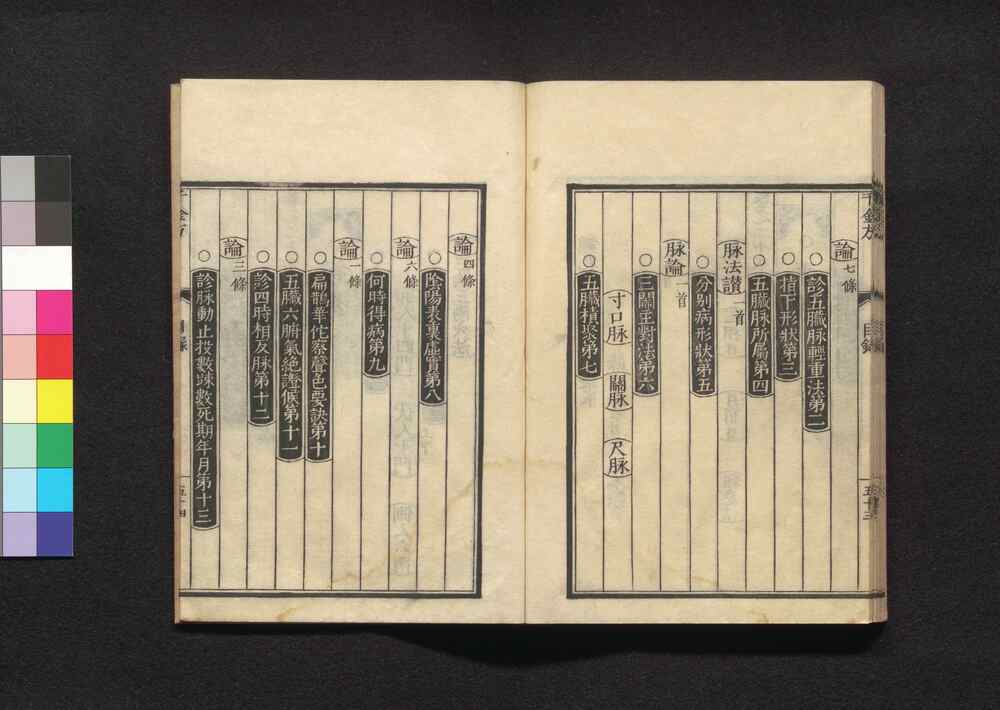 千金方
目録
五十三
論七條
○診五臟脉輕重法第二
○指下形狀第三
○五臟脉所屬第四
脉法讃一首
○分别病形狀第五
脉論一首
○三關主對法第六
寸口脉 關脉 尺脉
○五臟積聚第七
論四條
○陰陽表裏虛實第八
論六條
○何時得病第九
論一條
○扁鵲華佗察聲色要訣第十
○五臟六腑氣絕證候第十一
○診四時相反脉第十二
論三條
○診脉動止投數疎數死期年月第十三